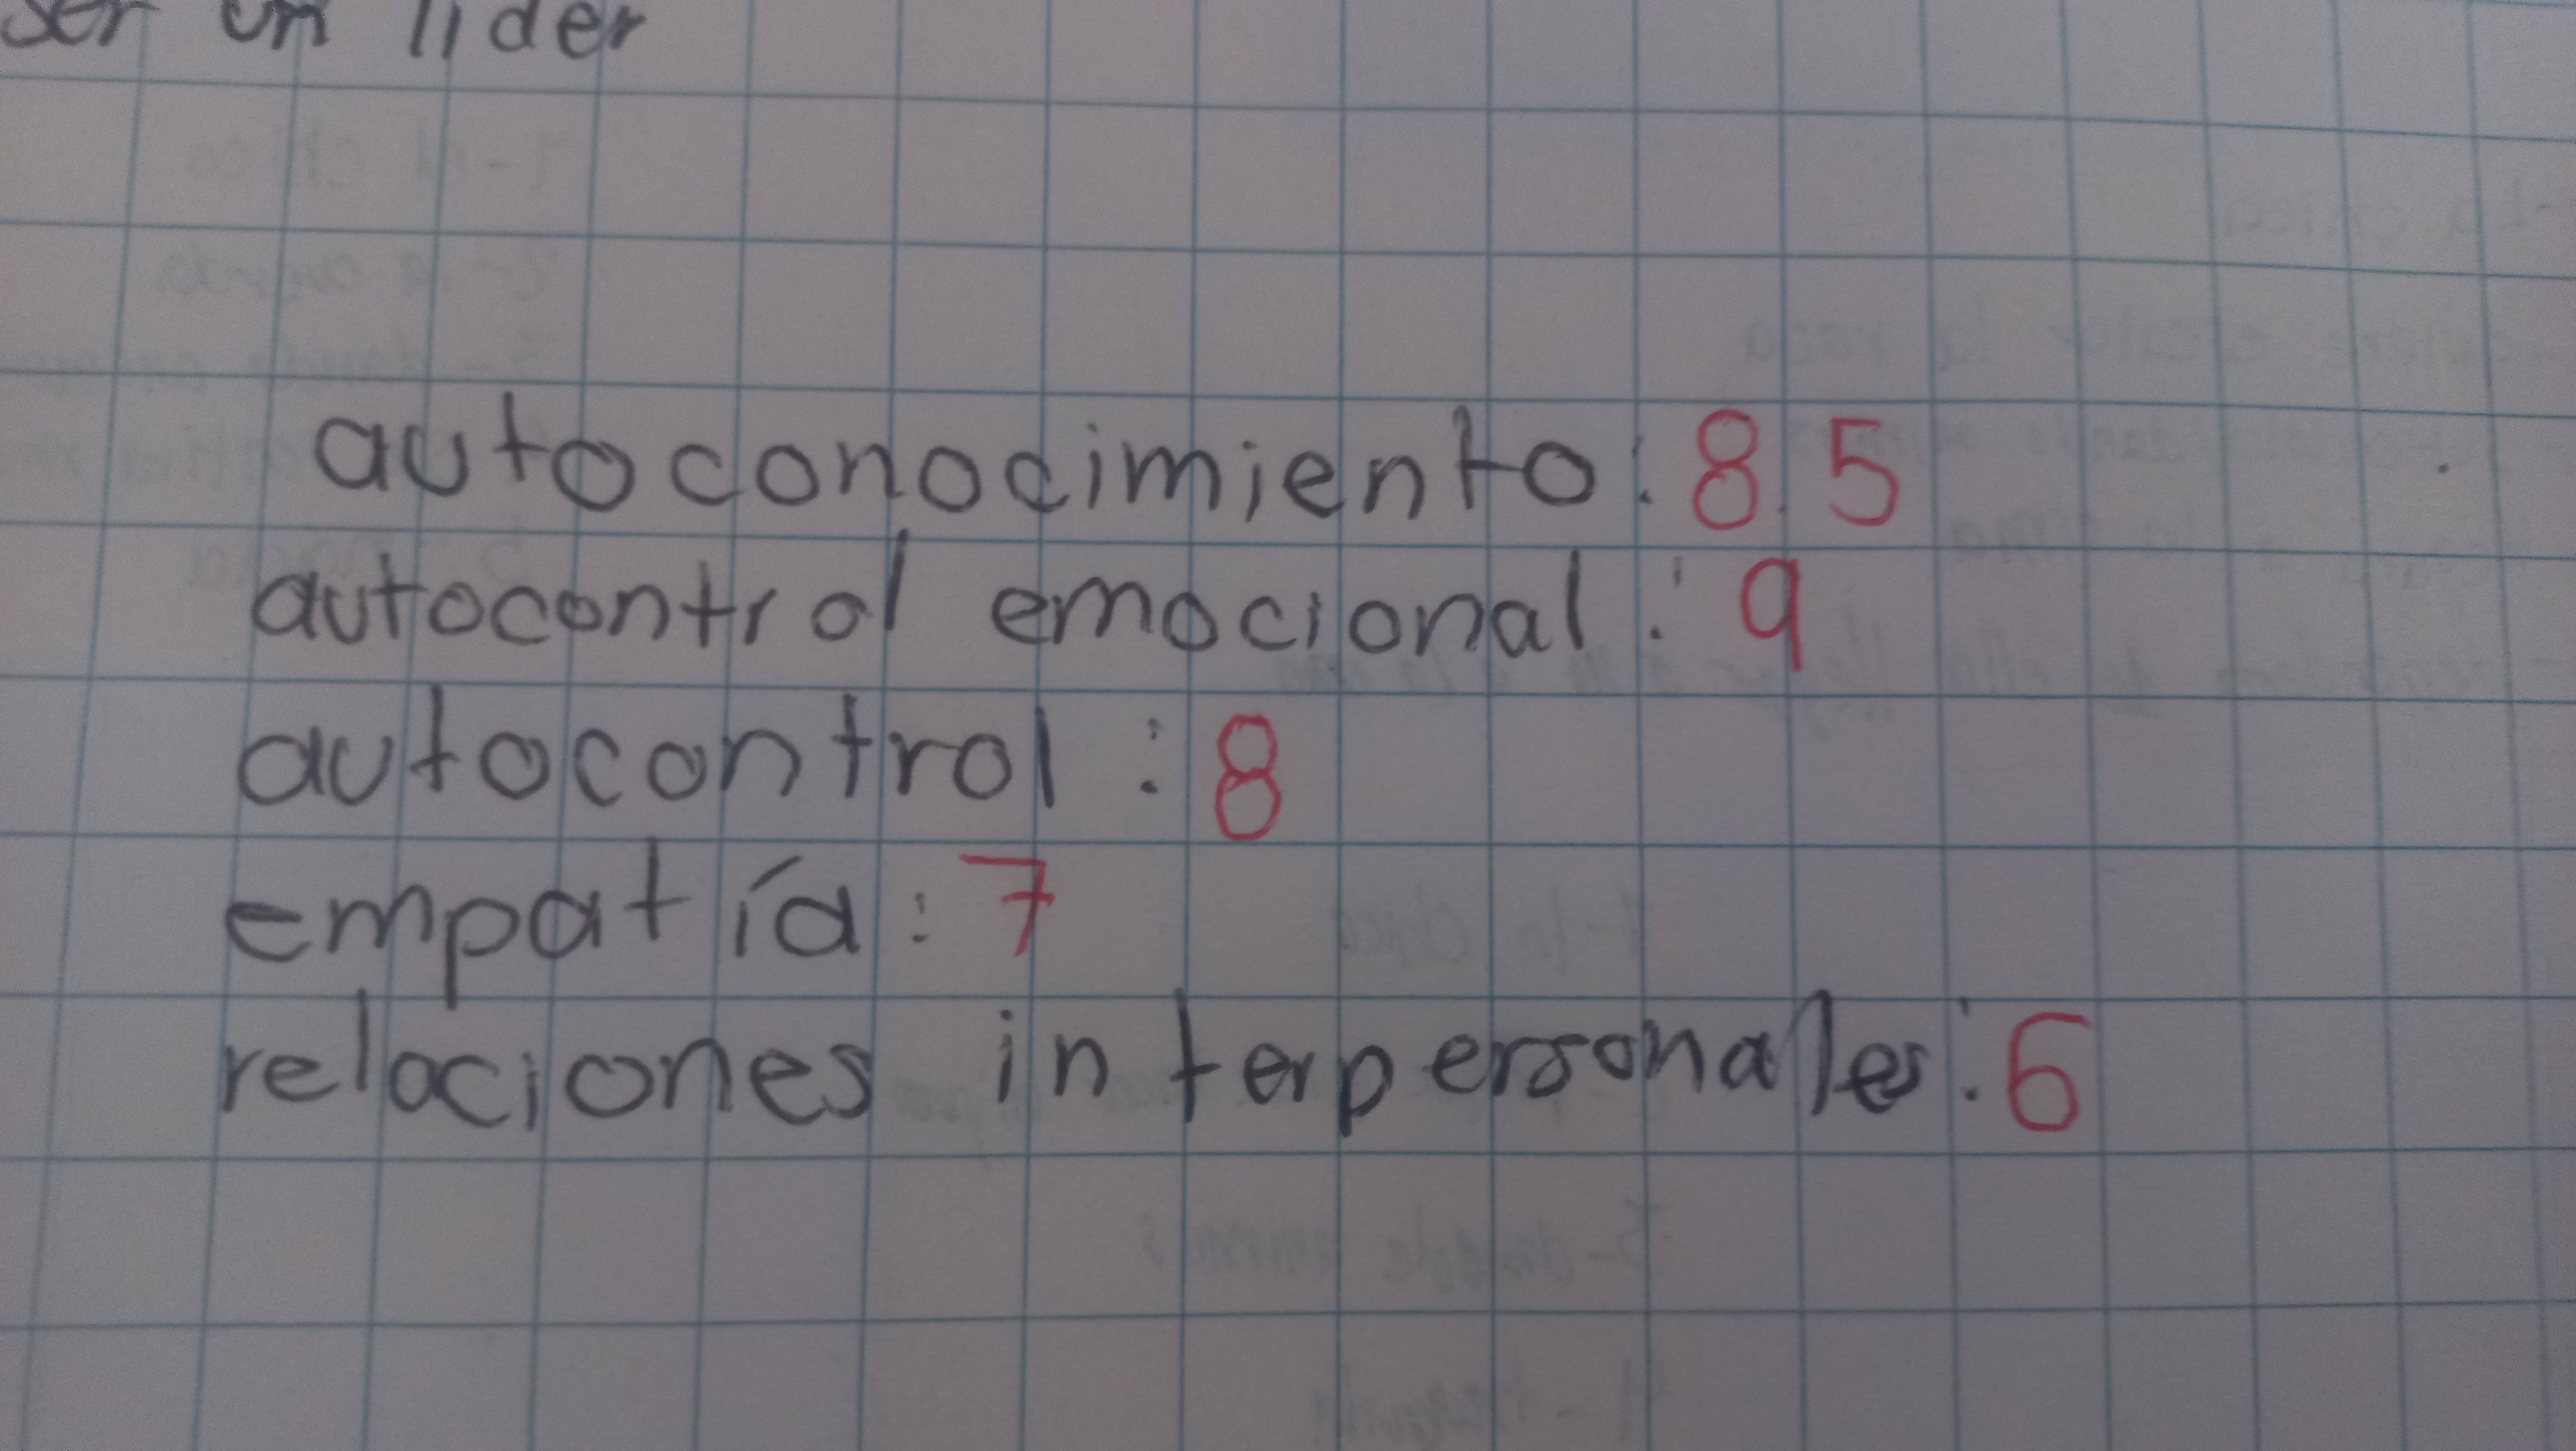 ser un lider
autoconocimiento: 8.5
autocontrol emocional: 9
autocontrol: 8
empatía: 7
relaciones interpersonales: 6